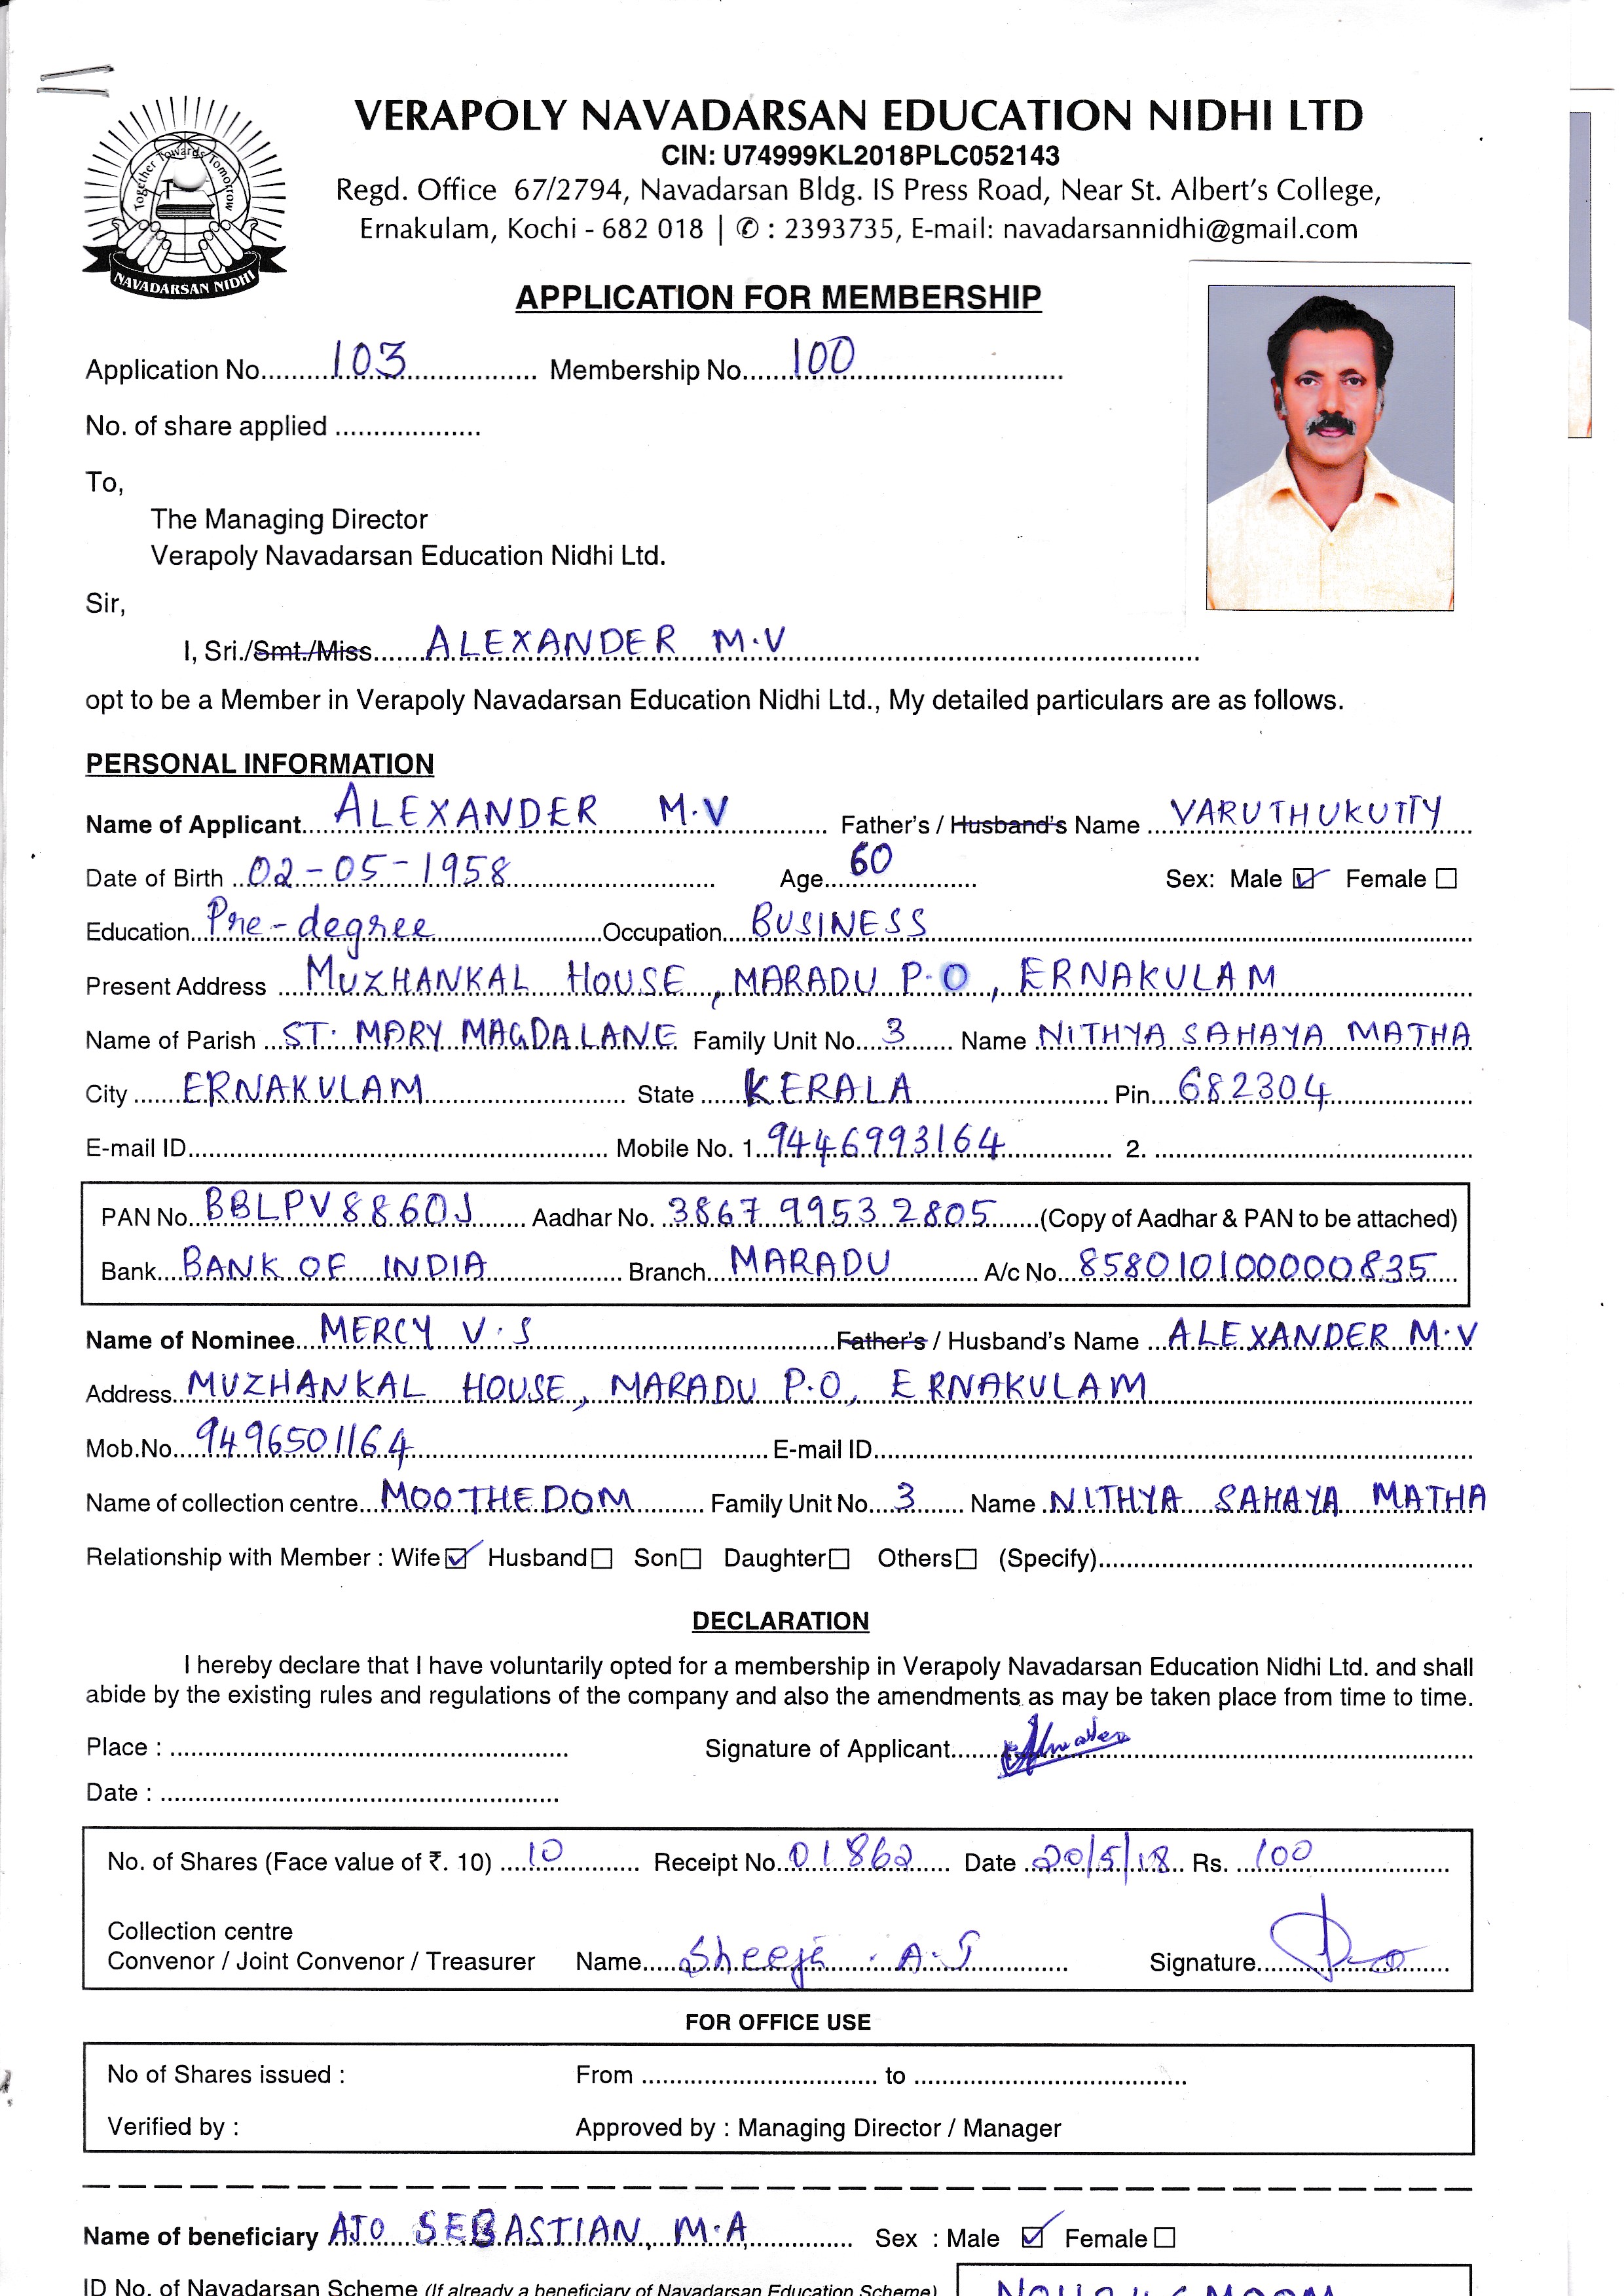 VERAPOLY NAVADARSAN EDUCATION NIDHI LTD
CIN: U74999KL2018PLC052143
Regd. Office 67/2794, Navadarsan Bldg. IS Press Road, Near St. Albert's College,
Ernakulam, Kochi - 682 018 | ✆ : 2393735, E-mail: navadarsannidhi@gmail.com
Together Towards Tomorrow
NAVADARSAN NIDHI
APPLICATION FOR MEMBERSHIP
Application No. 103 Membership No. 100
No. of share applied
To,
The Managing Director
Verapoly Navadarsan Education Nidhi Ltd.
Sir,
I, Sri./Smt./Miss ALEXANDER M.V
opt to be a Member in Verapoly Navadarsan Education Nidhi Ltd., My detailed particulars are as follows.
PERSONAL INFORMATION
Name of Applicant ALEXANDER M.V Father's / Husband's Name VARUTHUKUTTY
Date of Birth 02-05-1958 Age 60 Sex: Male ☑ Female ☐
Education Pre-degree Occupation BUSINESS
Present Address MUZHANKAL HOUSE, MARADU P.O, ERNAKULAM
Name of Parish ST. MARY MAGDALANE Family Unit No. 3 Name NITHYA SAHAYA MATHA
City ERNAKULAM State KERALA Pin 682304
E-mail ID Mobile No. 1. 9446993164 2.
PAN No. BBLPV8860J Aadhar No. 3867 9953 2805 (Copy of Aadhar & PAN to be attached)
Bank BANK OF INDIA Branch MARADU A/c No. 858010100000835
Name of Nominee MERCY V.S Father's / Husband's Name ALEXANDER M.V
Address MUZHANKAL HOUSE, MARADU P.O, ERNAKULAM
Mob.No. 9496501164 E-mail ID
Name of collection centre MOOTHEDOM Family Unit No. 3 Name NITHYA SAHAYA MATHA
Relationship with Member : Wife ☑ Husband ☐ Son ☐ Daughter ☐ Others ☐ (Specify)
DECLARATION
I hereby declare that I have voluntarily opted for a membership in Verapoly Navadarsan Education Nidhi Ltd. and shall
abide by the existing rules and regulations of the company and also the amendments as may be taken place from time to time.
Place : Signature of Applicant
Date :
No. of Shares (Face value of ₹. 10) 10 Receipt No. 01862 Date 20/5/18 Rs. 100
Collection centre
Convenor / Joint Convenor / Treasurer Name Sheeja . A.J Signature
FOR OFFICE USE
No of Shares issued : From to
Verified by : Approved by : Managing Director / Manager
Name of beneficiary AJO SEBASTIAN, M.A Sex : Male ☑ Female ☐
ID No. of Navadarsan Scheme (If already a beneficiary of Navadarsan Education Scheme)